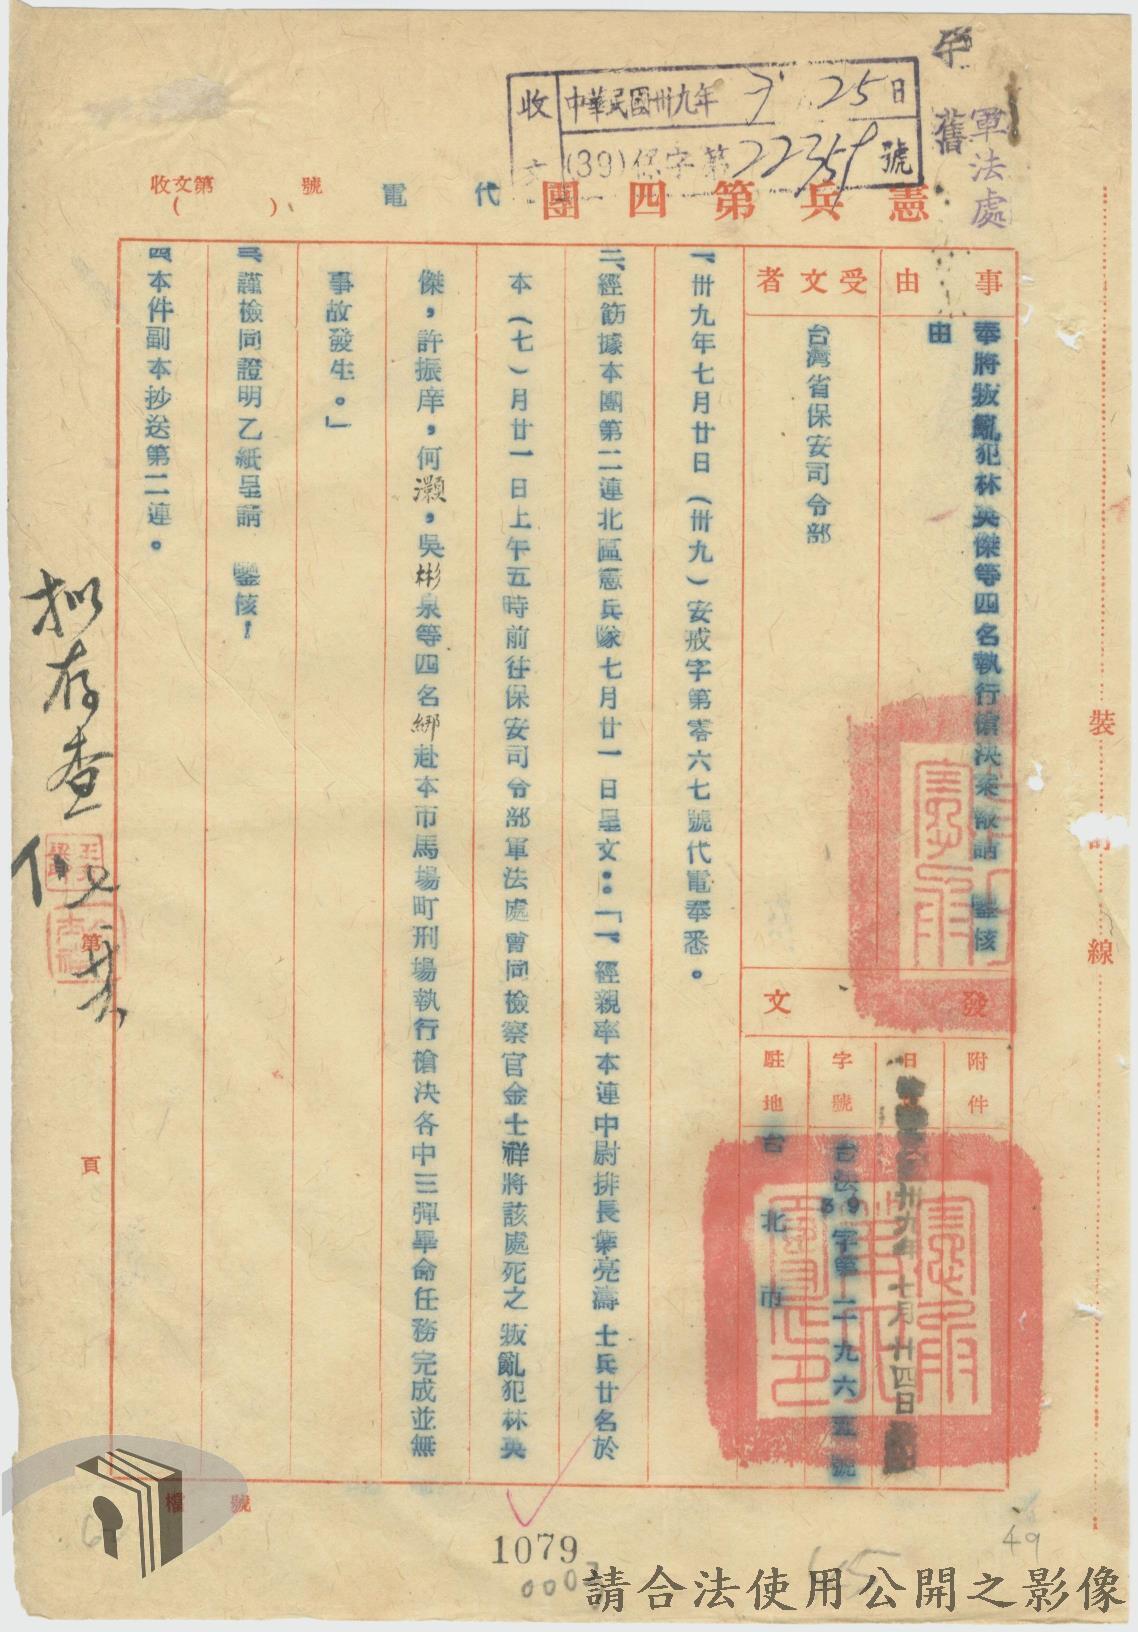 軍法處
收文 中華民國卅九年 25日
(39)保字第22359號
憲兵第四團代電
收文第( )號
事由
奉將叛亂犯林英傑等四名執行槍決案報請 鑒核
由
受文者
台灣省保安司令部
發文
附件
日
卅九年七月廿四日
字號
台法39字第二九六五號
駐地
台北市
一、卅九年七月廿日(卅九)安戒字第零六七號代電奉悉。
二、經飭據本團第二連北區憲兵隊七月廿一日呈文:「一、經親率本連中尉排長葉亮濤士兵廿名於
本(七)月廿一日上午五時前往保安司令部軍法處會同檢察官金士祥將該處死之叛亂犯林英
傑,許振庠,何灝,吳彬泉等四名綁赴本市馬場町刑場執行槍決各中三彈畢命任務完成並無
事故發生。」
三、謹檢同證明乙紙呈請 鑒核!
四、本件副本抄送第二連。
擬存查
第 頁
裝訂線
檔號
1079
0003
49
請合法使用公開之影像